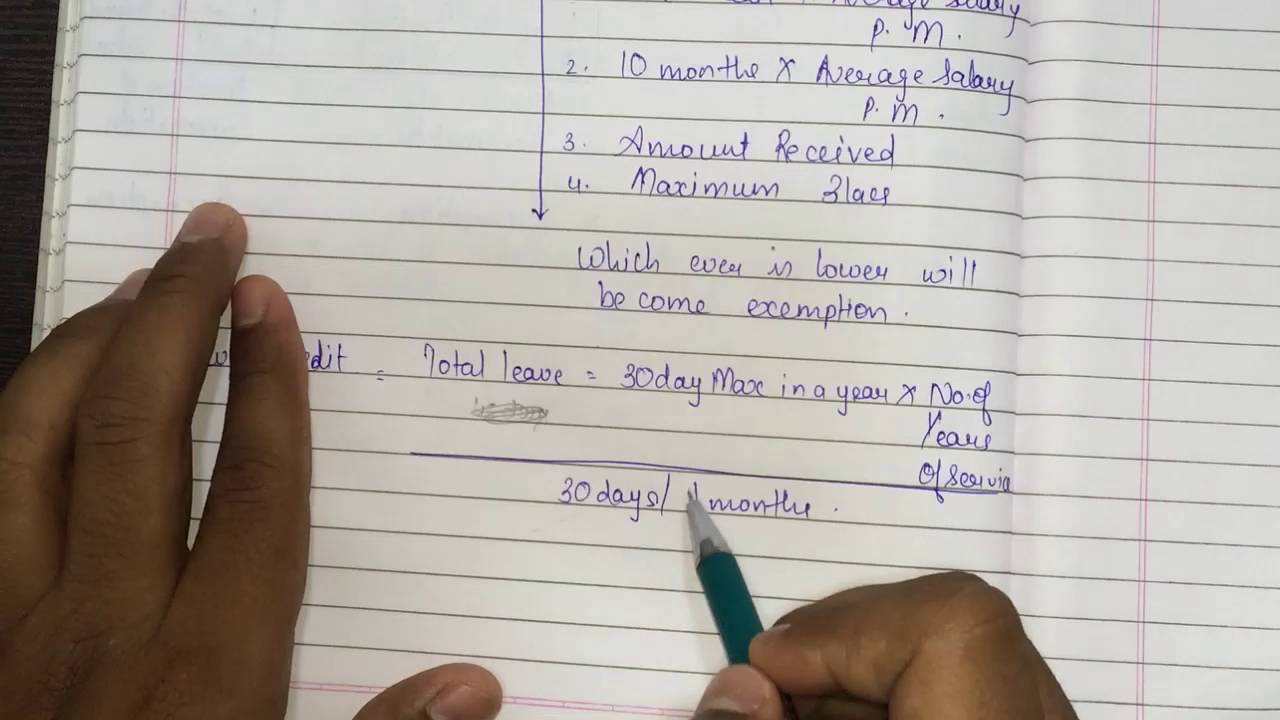 Average Salary
P. M.
2. 10 months X Average Salary
P. M.
3. Amount Received
4. Maximum 3lacs
Which ever is lower will
become exemption.
edit = Total leave = 30day Max in a year X No. of
Years
Of Servic
30days/ 1 months.